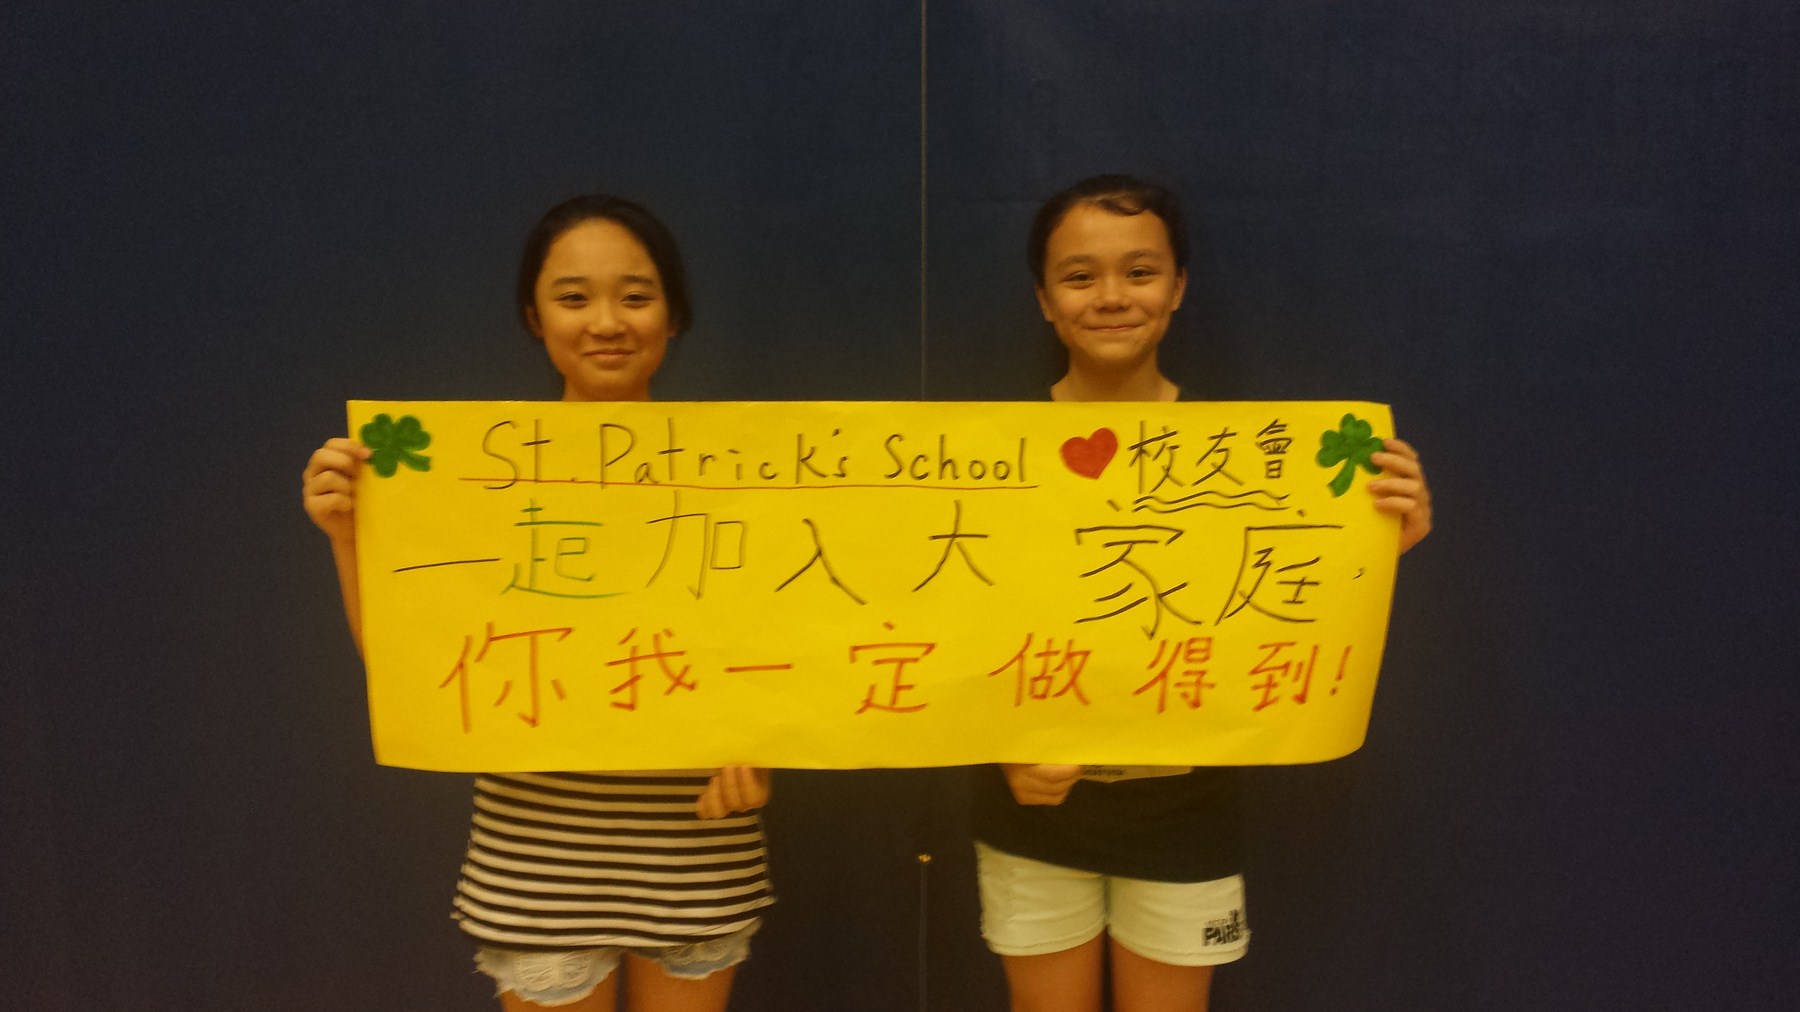 St. Patrick's School ♥ 校友會
一起加入大家庭,
你我一定做得到!
PARIS